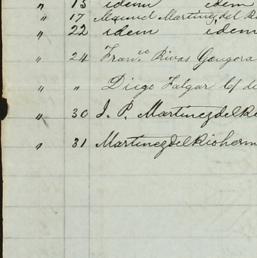 " 15 idem idem
" 17 Manuel Martinez del R
" 22 idem idem
" 24 Fran.co Rivas Gongora
" " Diego
" 30 J. P. Martinez del R
" 31 Martinez del Rio herm